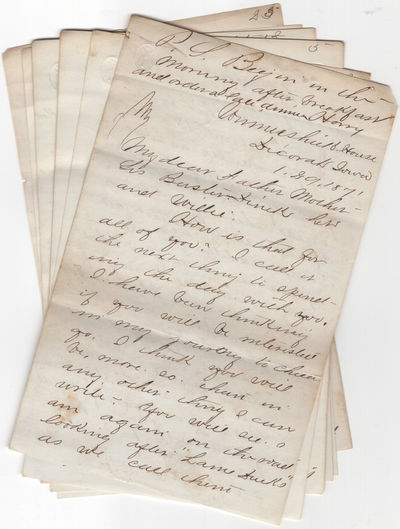 23
5
P S Begin in the
morning after breakfast
and order a late dinner Harry
House
Decorah Iowa
1.29.1871
My dear Father Mother
Sis Buster
and Willie.
How is that for
all of you? I call it
the next thing to spend-
ing the day with you.
I have been thinking
if you will be interested
in my journey to
go. I think you will
be, more so than in
any other thing I can
write. You will see I
am again on the road
looking after "Lame Ducks"
as we call them